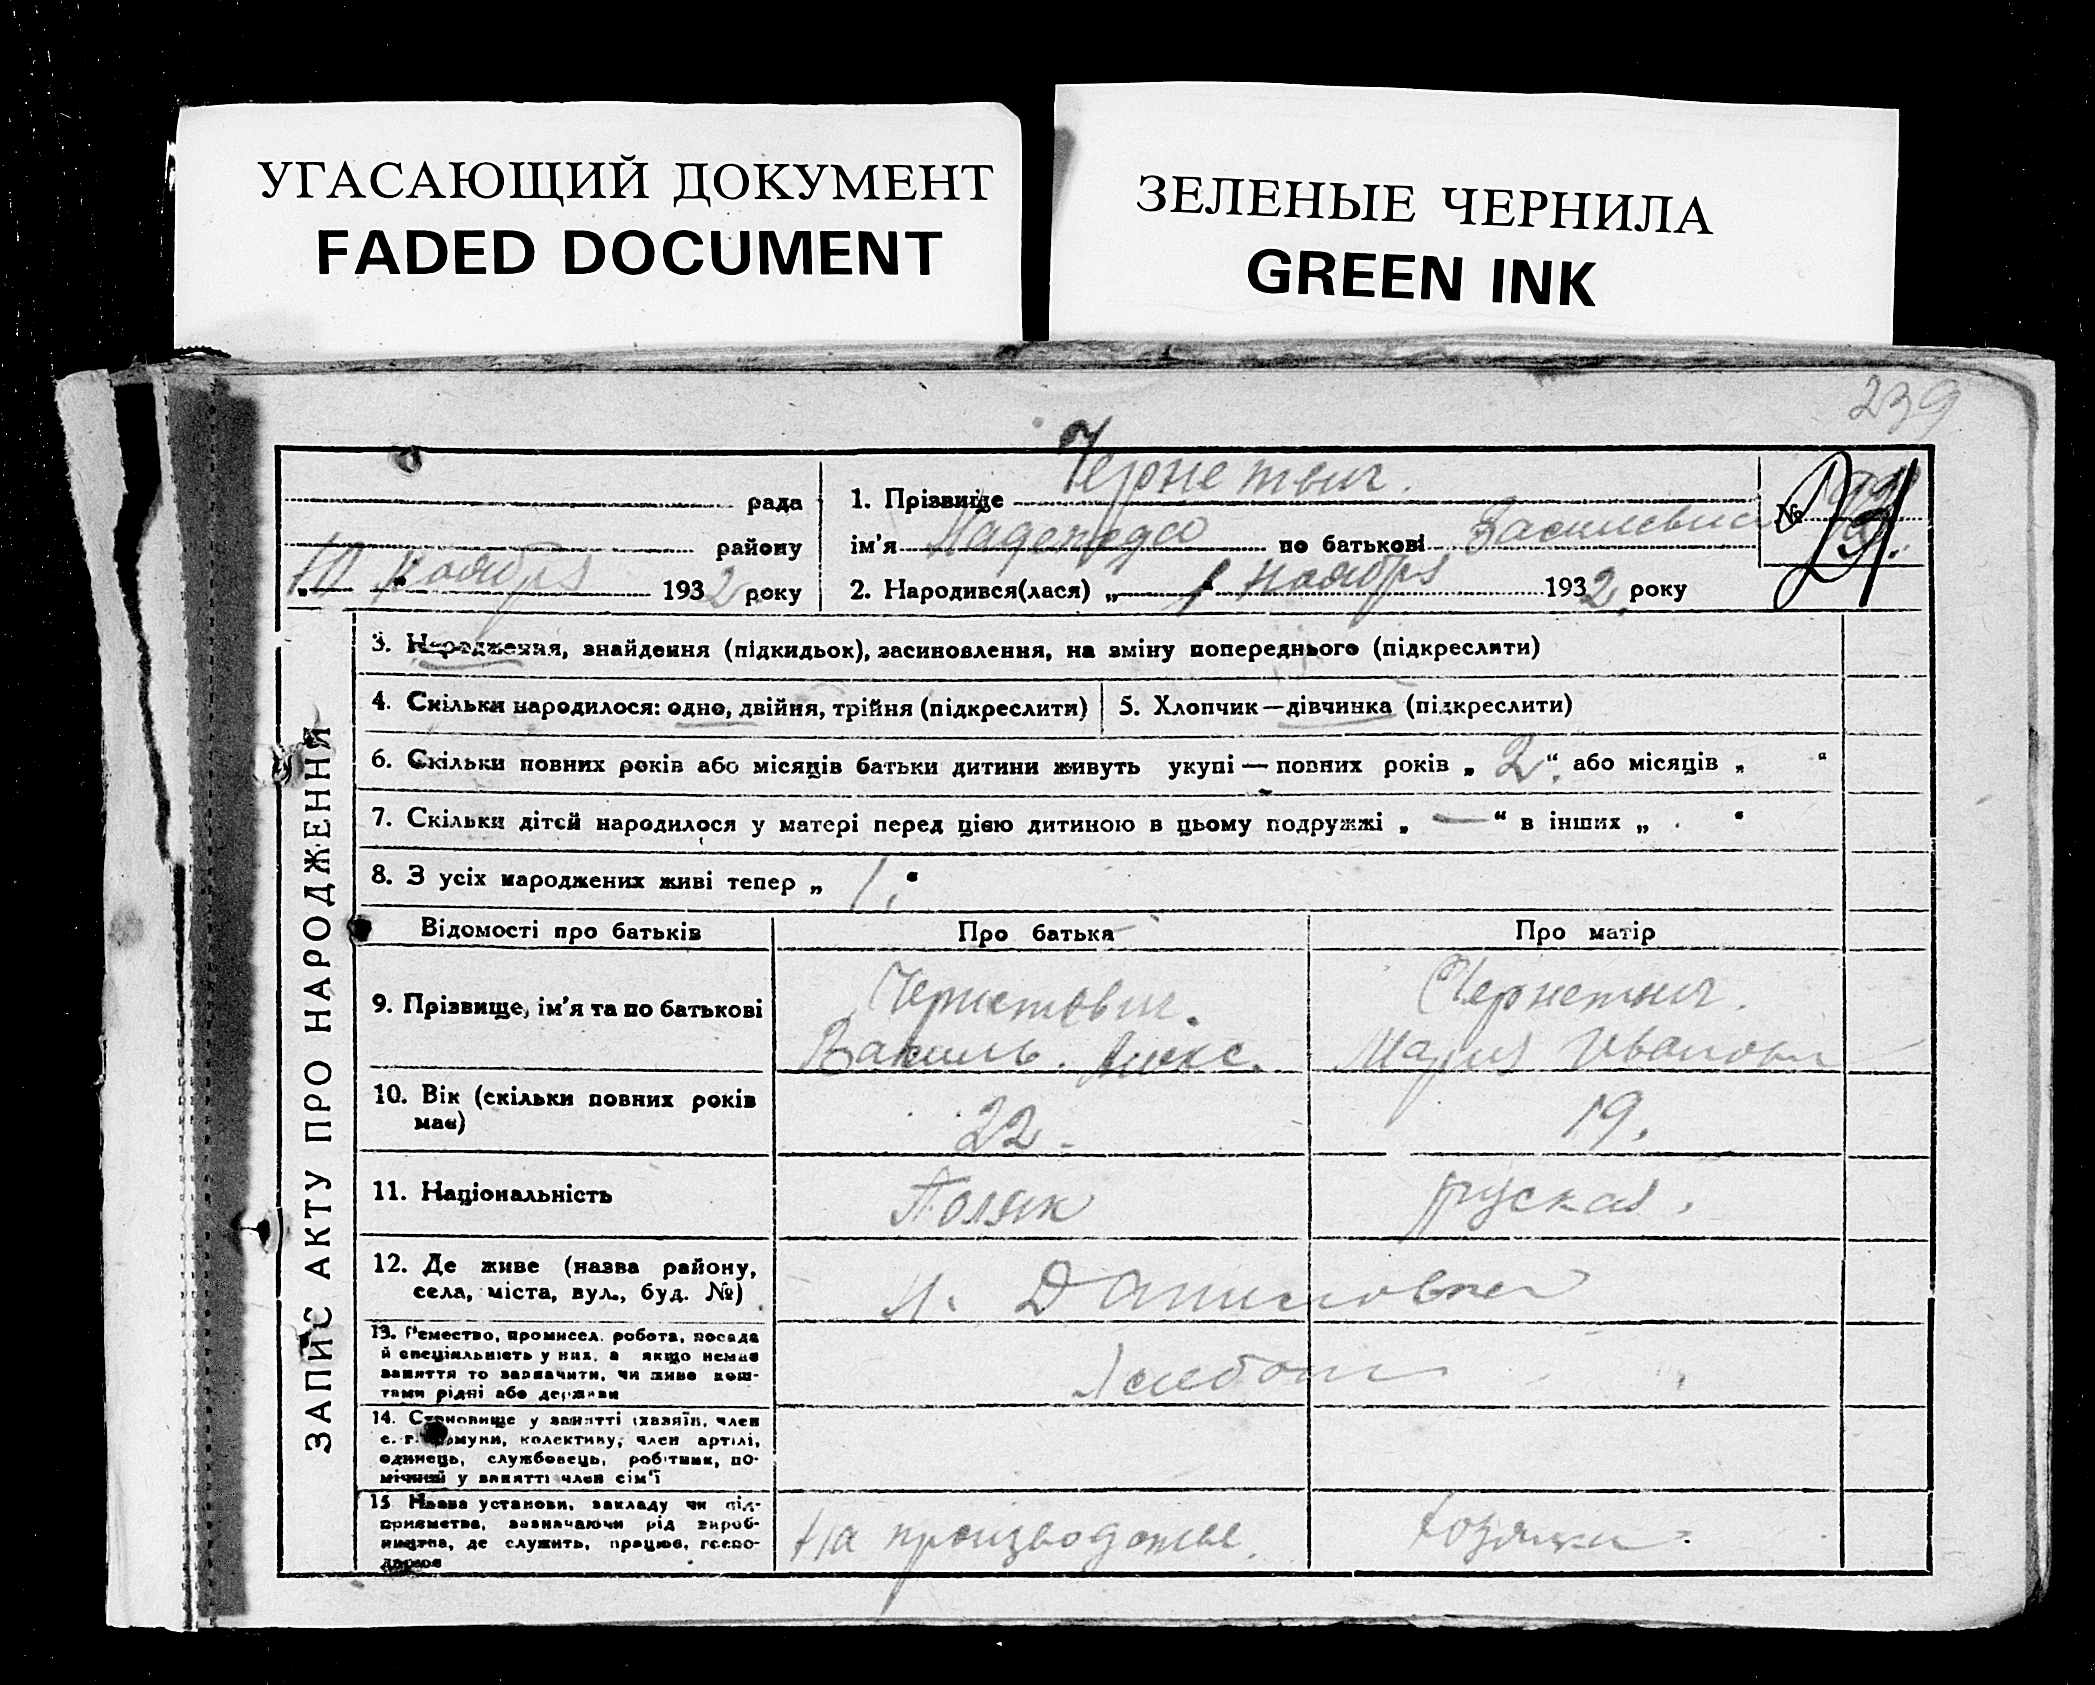 УГАСАЮЩИЙ ДОКУМЕНТ
FADED DOCUMENT
ЗЕЛЕНЫЕ ЧЕРНИЛА
GREEN INK
239
рада
району
10 " Ноября 1932 року
1. Прізвище
ім'я Надежда по батькові
2. Народився(лася) „ 1 Ноября 1932 року
№
ЗАПИС АКТУ ПРО НАРОДЖЕННЯ
3. Народження, знайдення (підкидьок), засиновлення, на зміну попереднього (підкреслити)
4. Скільки народилося: одно, двійня, трійня (підкреслити)
5. Хлопчик—дівчинка (підкреслити)
6. Скільки повних років або місяців батьки дитини живуть укупі — повних років „ 2 “ або місяців „ “
7. Скільки дітей народилося у матері перед цією дитиною в цьому подружжі „ — “ в інших „ “
8. З усіх народжених живі тепер „ 1. “
Відомості про батьків
Про батька
Про матір
9. Прізвище, ім'я та по батькові
Мария
10. Вік (скільки повних років має)
22
19.
11. Національність
Поляк
руская.
12. Де живе (назва району, села, міста, вул., буд. №)
13. Ремество, промисел, робота, посада й спеціяльність у них, а якщо немає заняття то зазначити, чи живе коштами рідні або держави
14. Становище у занятті (хазяїн, член с. г. комуни, колективу, член артілі, одинець, службовець, робітник, помічний у занятті член сім'ї
15. Назва установи, закладу чи підприємства, зазначаючи рід виробництва, де служить, працює, господарює
На